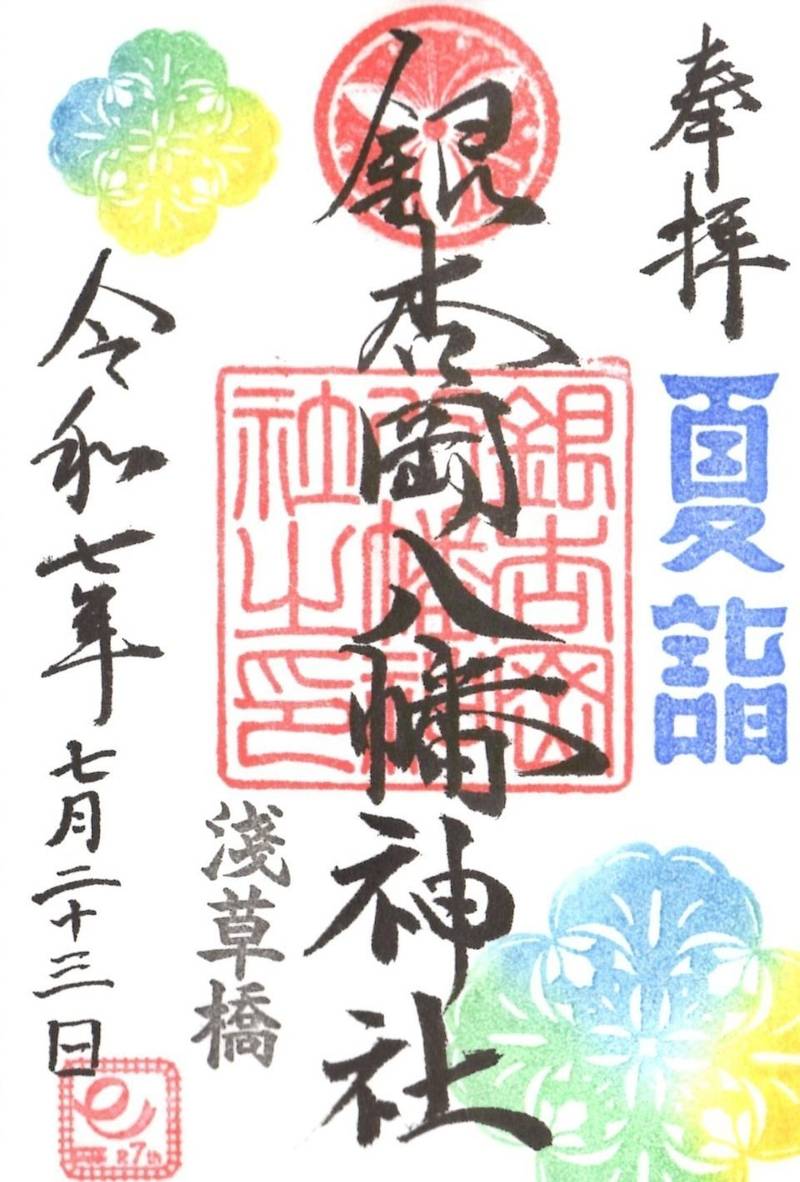 奉拝
夏詣
銀杏岡八幡神社
銀杏岡八幡神社之印
浅草橋
令和七年七月二十三日
R7th